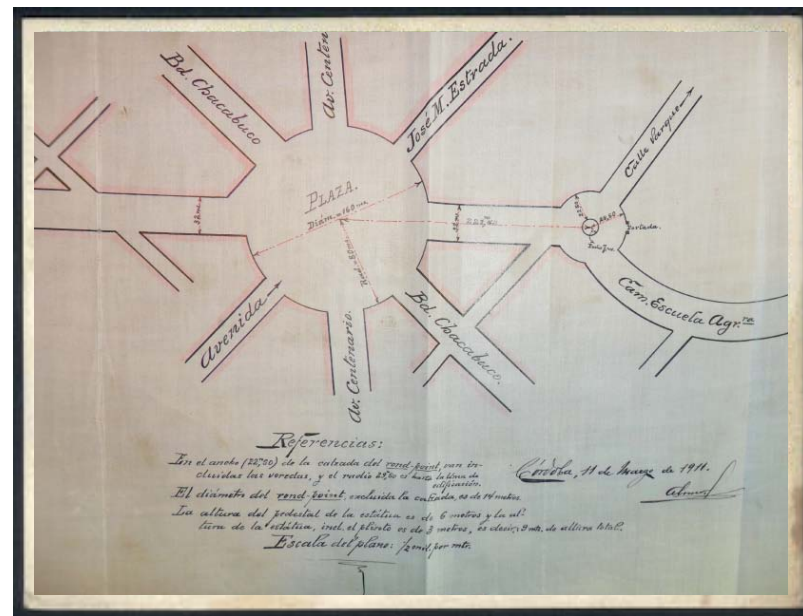 Bd. Chacabuco
Av. Centen
José M. Estrada.
Calle Parque
PLAZA.
Diám. = 160 m.
32 m.
32 m.
Rad. = 80 m.
Avenida
Av. Centenario.
Bd. Chacabuco.
Cam. Escuela Agr.ra
Referencias:
En el ancho (22,50) de la calzada del rond-point, van in-
cluidas las veredas, y el radio es hasta la línea de
edificación.
El diámetro del rond-point, excluida la calzada, es de 14 metros.
La altura del pedestal de la estátua es de 6 metros y la al-
tura de la estátua, incl. el plinto es de 3 metros, es decir, 9 mts. de altura total.
Escala del plano: 1/2 mil. por mtr.
Córdoba, 11 de Marzo de 1911.